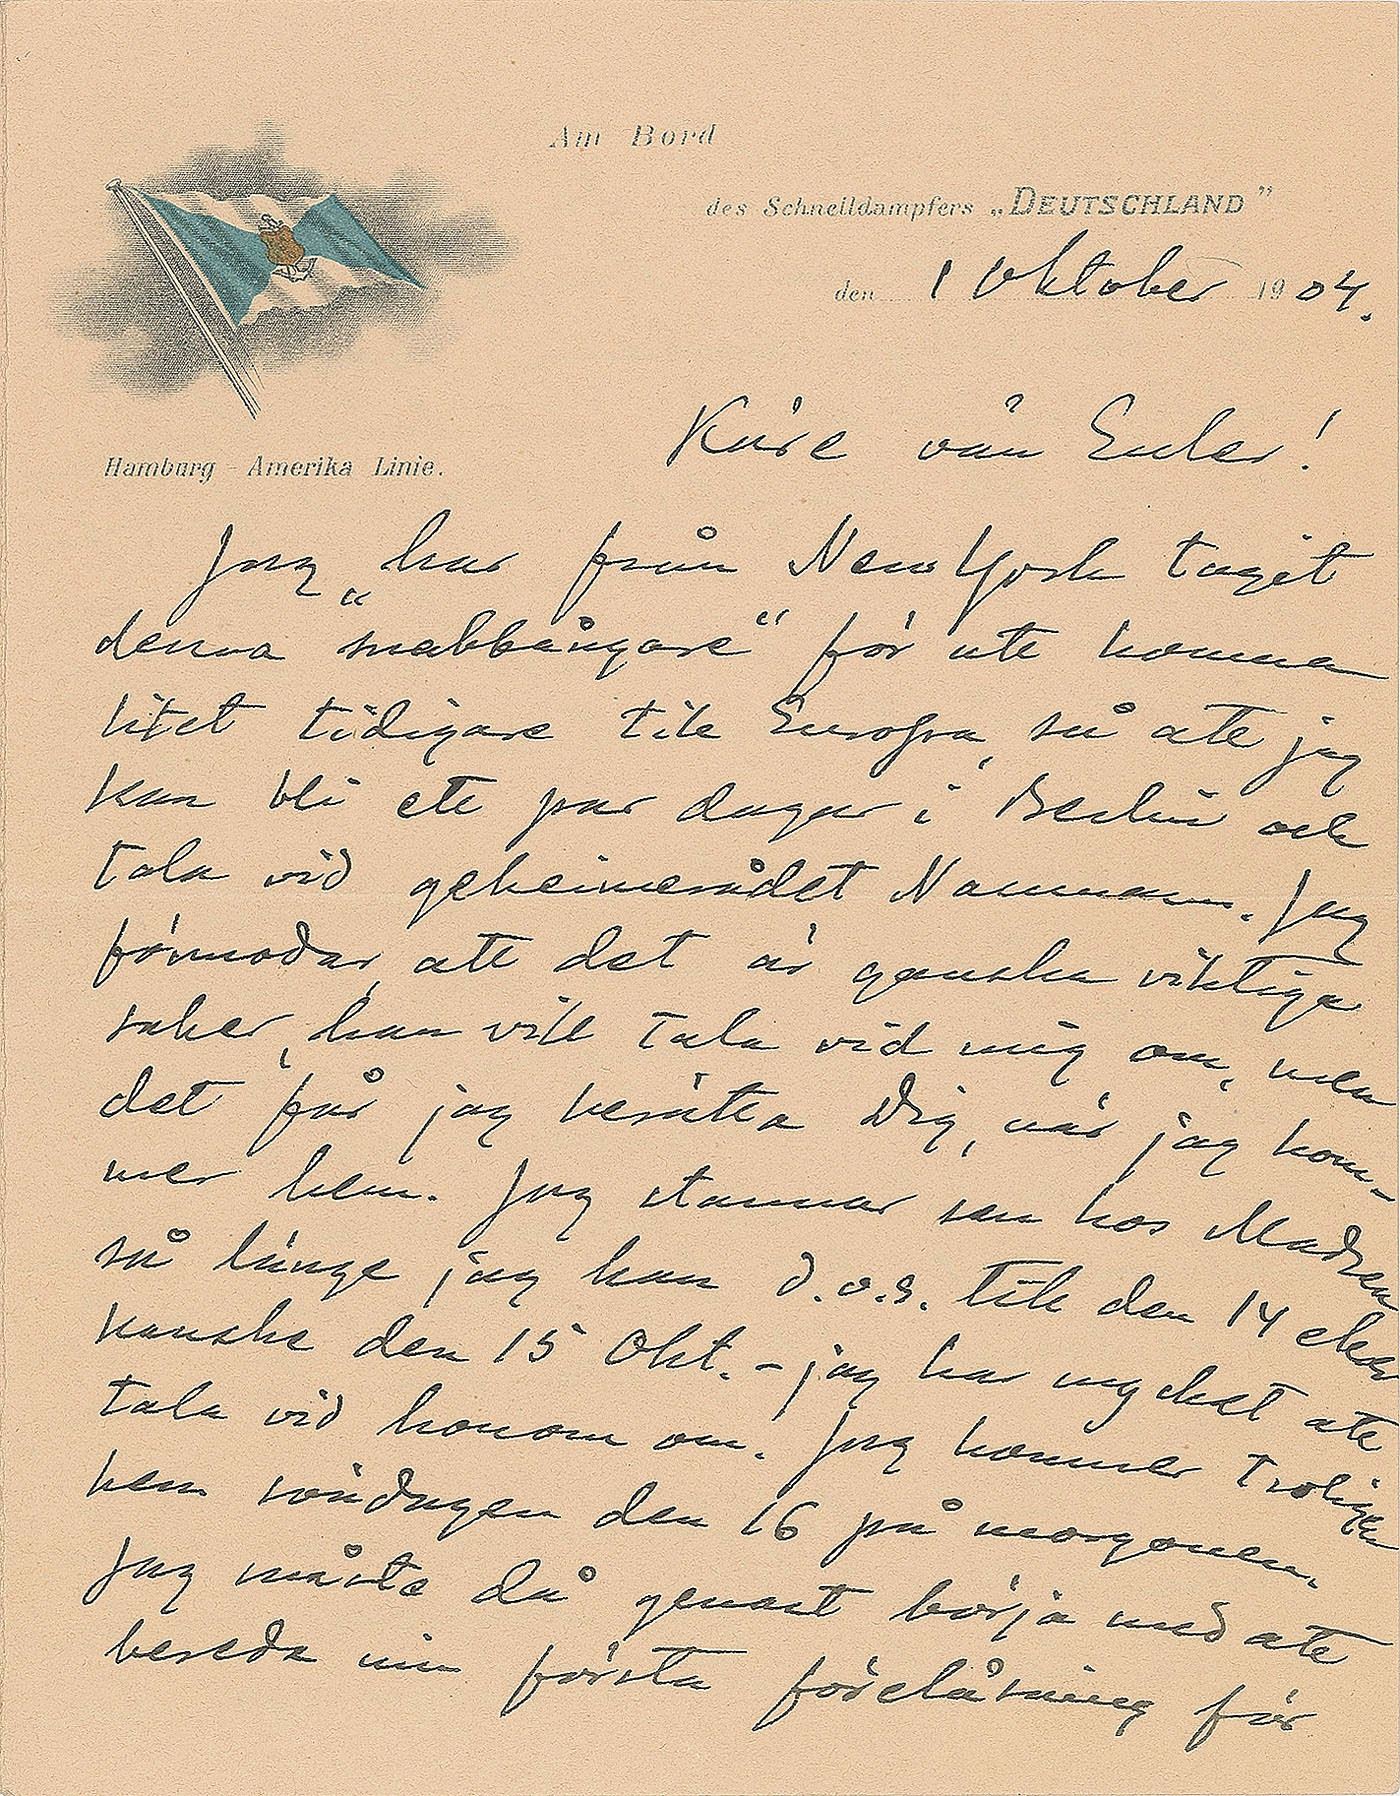 Am Bord
des Schnelldampfers „DEUTSCHLAND”
den 1 Oktober 1904.
Hamburg - Amerika Linie.
Käre vän Euler!
Jag har från New York tagit
denna "snabbångare" för att komma
litet tidigare till Europa, så att jag
kan bli ett par dagar i Berlin och
tala vid geheimerådet Naumann. Jag
förmodar, att det är ganska viktiga
saker, han vill tala vid mig om, men
det får jag berätta Dig, när jag kom-
mer hem. Jag stannar sen hos Madsen
så länge jag kan d.v.s. till den 14 eller
kanske den 15 Okt. - jag har mycket att
tala vid honom om. Jag kommer troligen
hem söndagen den 16 på morgonen.
Jag måste då genast börja med att
bereda min första föreläsning för